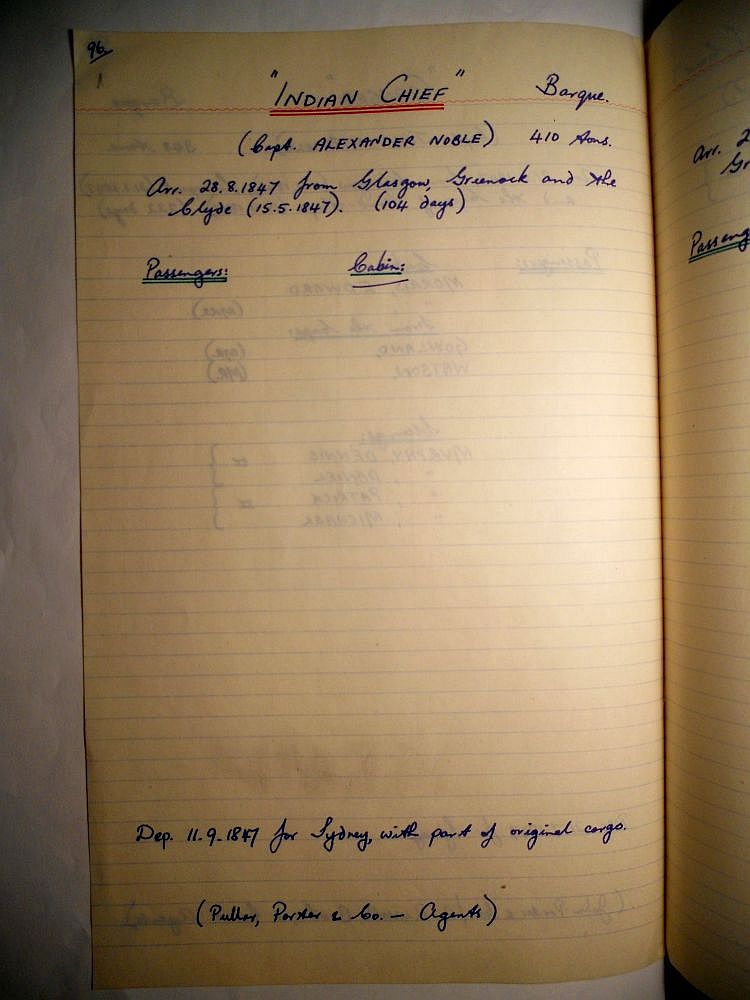 96.
"INDIAN CHIEF" Barque.
(Capt. ALEXANDER NOBLE) 410 tons.
Arr. 28.8.1847 from Glasgow, Greenock and the
Clyde (15.5.1847). (104 days)
Passengers: Cabin:
Dep. 11.9.1847 for Sydney, with part of original cargo.
(Pullar, Porter & Co. — Agents)
Arr. 2
Gr
Passeng